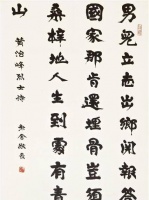 男兒立志出鄉關報
國家那肯還埋骨豈須
桑梓地人生到處有青
山
黃治峰烈士詩